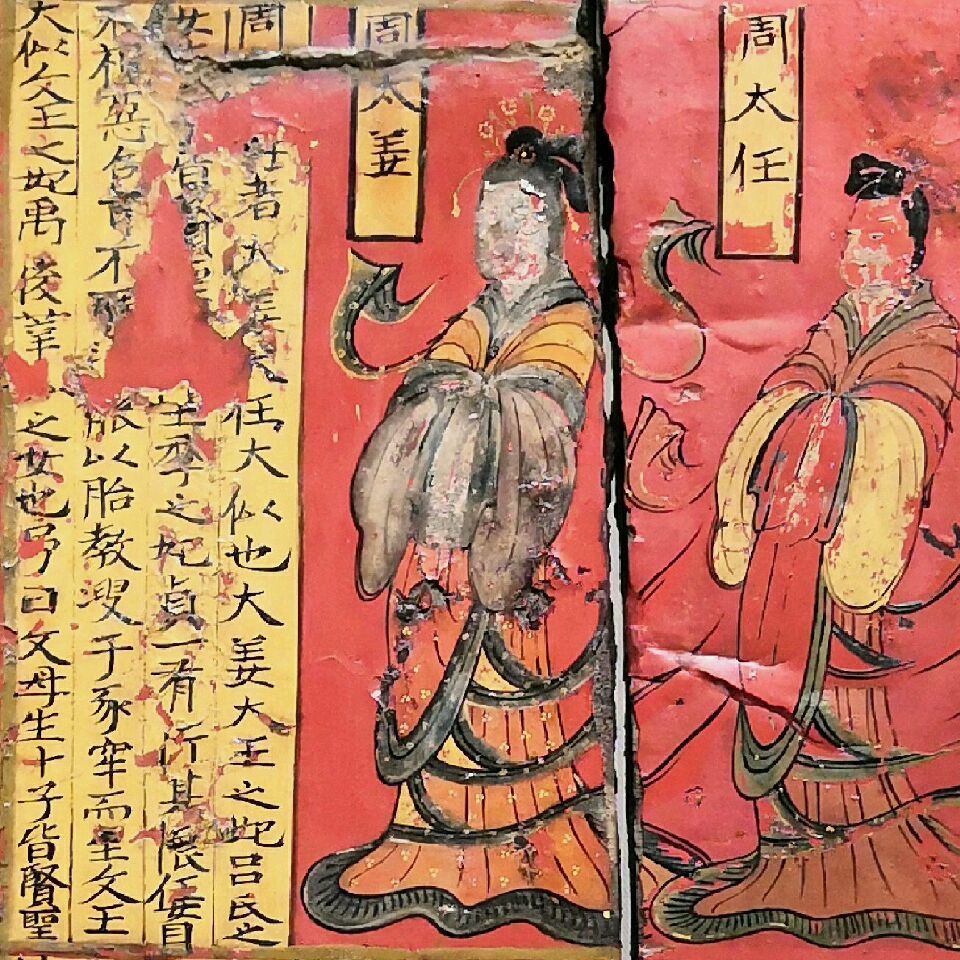 周太任
周太姜
周 者大姜大任大似也大姜大王之妃吕氏之
女 賢 王季之妃貞一有行其 任自
不視惡色耳不 能以胎教溲于豕窂而生文王
大似文王之妃禹後莘 之女也号曰文母生十子皆賢聖